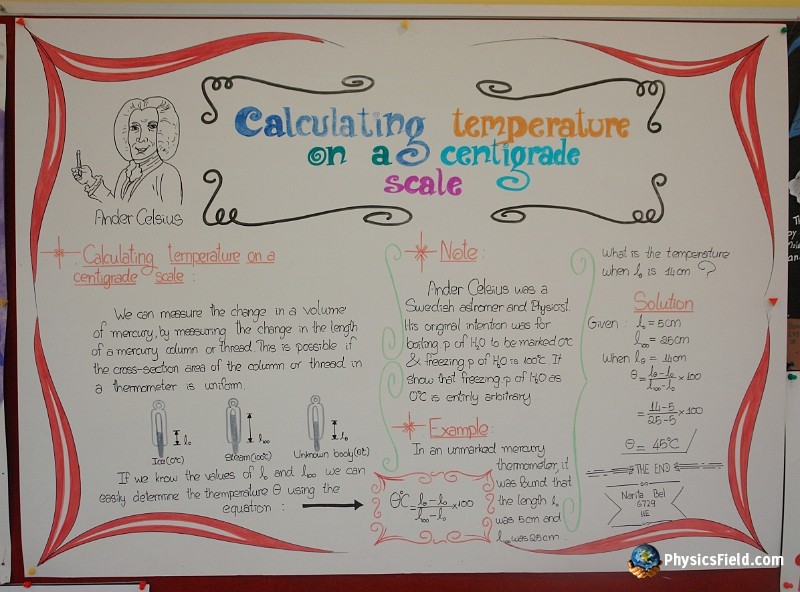 Calculating temperature
on a centigrade
scale
Ander Celsius
Calculating temperature on a
centigrade scale :
We can measure the change in a volume
of mercury, by measuring the change in the length
of a mercury column or thread. This is possible if
the cross-section area of the column or thread in
a thermometer is uniform.
l₀
l₁₀₀
lθ
Ice(0°C)
Steam(100°C)
Unknown body(θ°C)
If we know the values of l₀ and l₁₀₀ we can
easily determine the themperature θ using the
equation :
Note :
Ander Celsius was a
Swedish astromer and Physicst.
His original intention was for
boiling. p of H₂O to be marked 0°C
& freezing p of H₂O is 100°C. It
show that freezing. p of H₂O as
0°C is entirly arbitrary
Example :
In an unmarked mercury
thermometer, it
was found that
the length l₀
was 5cm and
l₁₀₀ was 25cm.
θ°C = lθ - l₀ / l₁₀₀ - l₀ x100
What is the temperature
when lθ is 14cm ?
Solution
Given : l₀ = 5cm
l₁₀₀ = 25cm
When lθ = 14cm
θ = lθ - l₀ / l₁₀₀ - l₀ x 100
= 14-5 / 25-5 x 100
θ = 45°C
THE END
Narita Bel
6729
11E
PhysicsField.com